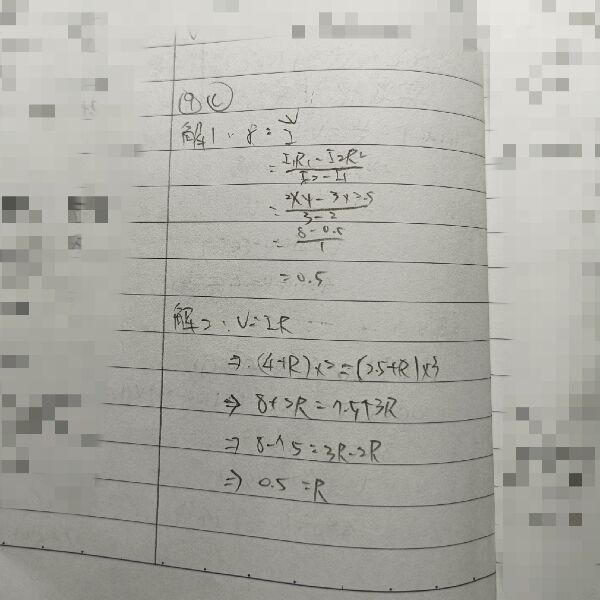 (9)(C)
解1: 8 = V/I
= (I₁R₁ - I₂R₂)/(I₂ - I₁)
= (2×4 - 3×2.5)/(3-2)
= (8-0.5)/1
= 0.5
解2: V=IR
⇒ (4+R)×2 = (2.5+R)×3
⇒ 8+2R = 7.5+3R
⇒ 8-7.5 = 3R-2R
⇒ 0.5 = R